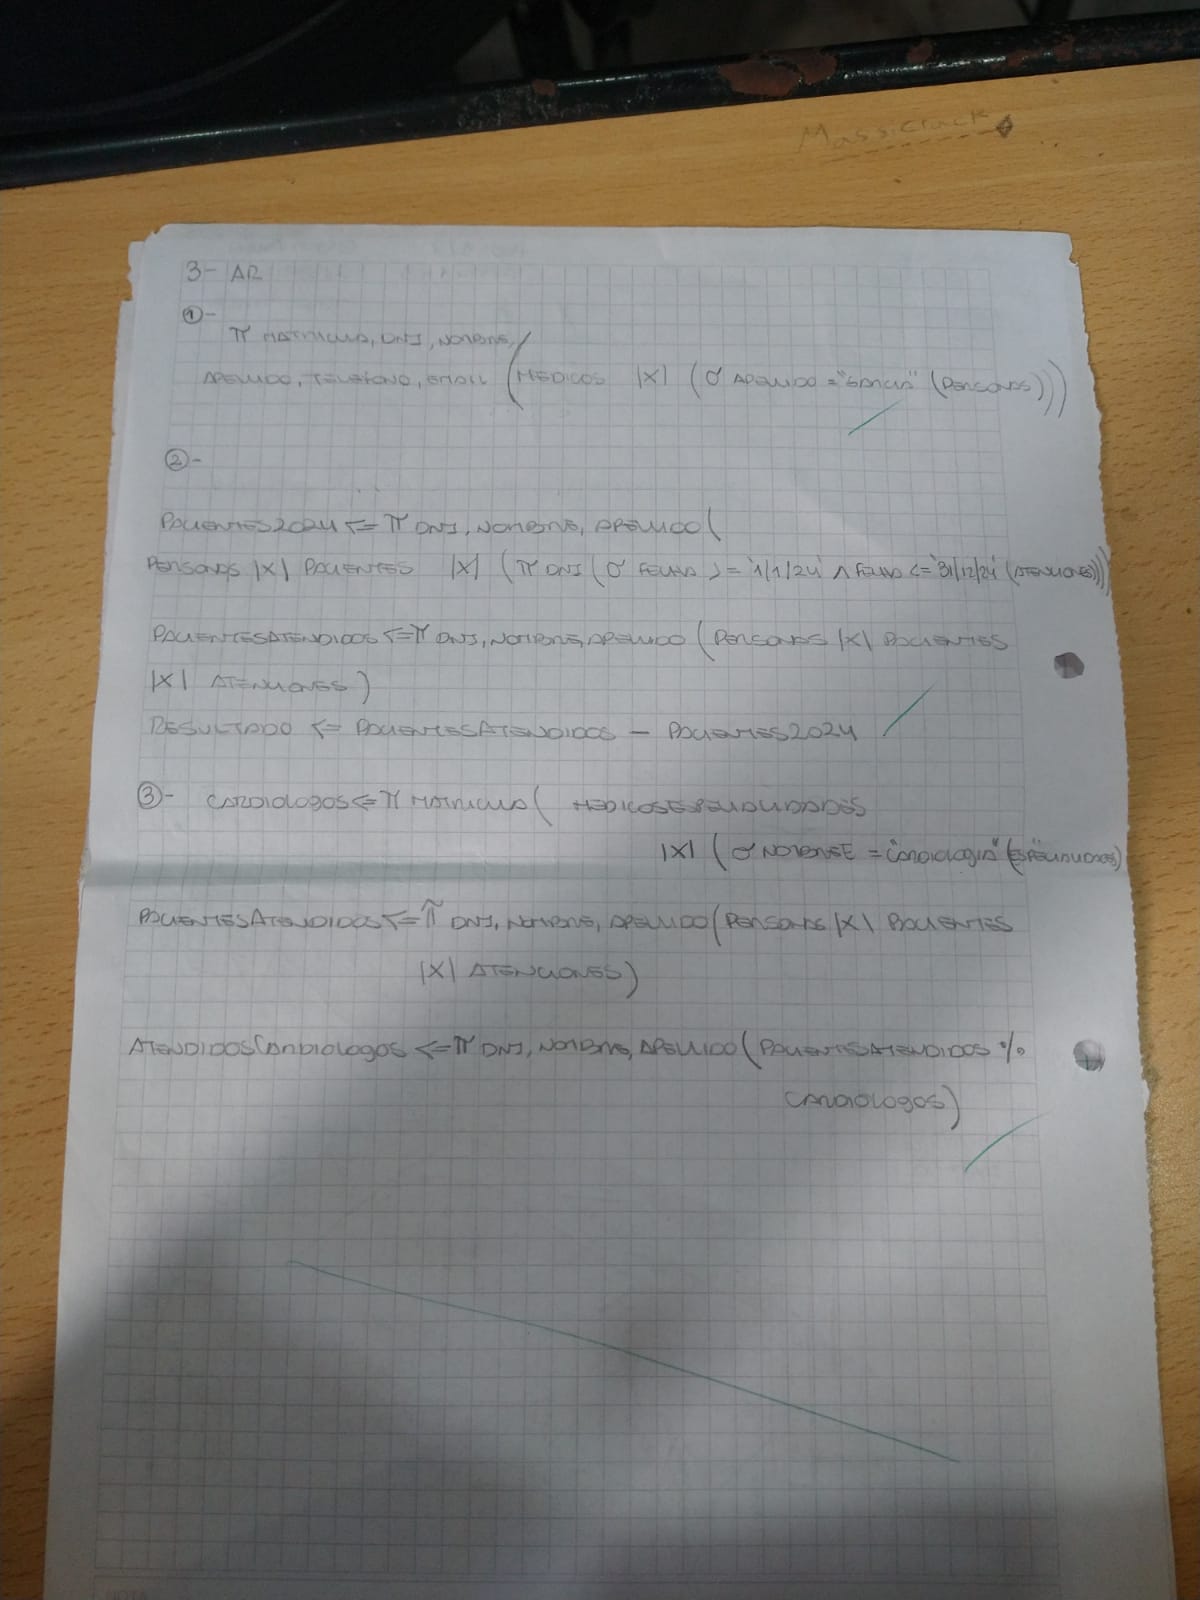 Massicrack
3- AR
①-
π MATRICULA, DNI, NOMBRE,
APELLIDO, TELEFONO, EMAIL (MEDICOS |X| (σ APELLIDO = "GARCIA" (PERSONAS)))
②-
PACIENTES2024 <= π DNI, NOMBRE, APELLIDO (
PERSONAS |X| PACIENTES |X| (π DNI (σ FECHA >= '1/1/24' ∧ FECHA <= '31/12/24' (ATENCIONES))))
PACIENTESATENDIDOS <= π DNI, NOMBRE, APELLIDO (PERSONAS |X| PACIENTES
|X| ATENCIONES)
RESULTADO <= PACIENTESATENDIDOS - PACIENTES2024
③- CARDIOLOGOS <= π MATRICULA ( MEDICOSESPECIALIDADES
|X| (σ NOMBREE = "CARDIOLOGIA" (ESPECIALIDADES)
PACIENTESATENDIDOS <= π DNI, NOMBRE, APELLIDO (PERSONAS |X| PACIENTES
|X| ATENCIONES)
ATENDIDOSCARDIOLOGOS <= π DNI, NOMBRE, APELLIDO (PACIENTESATENDIDOS %
CARDIOLOGOS)
NOTA